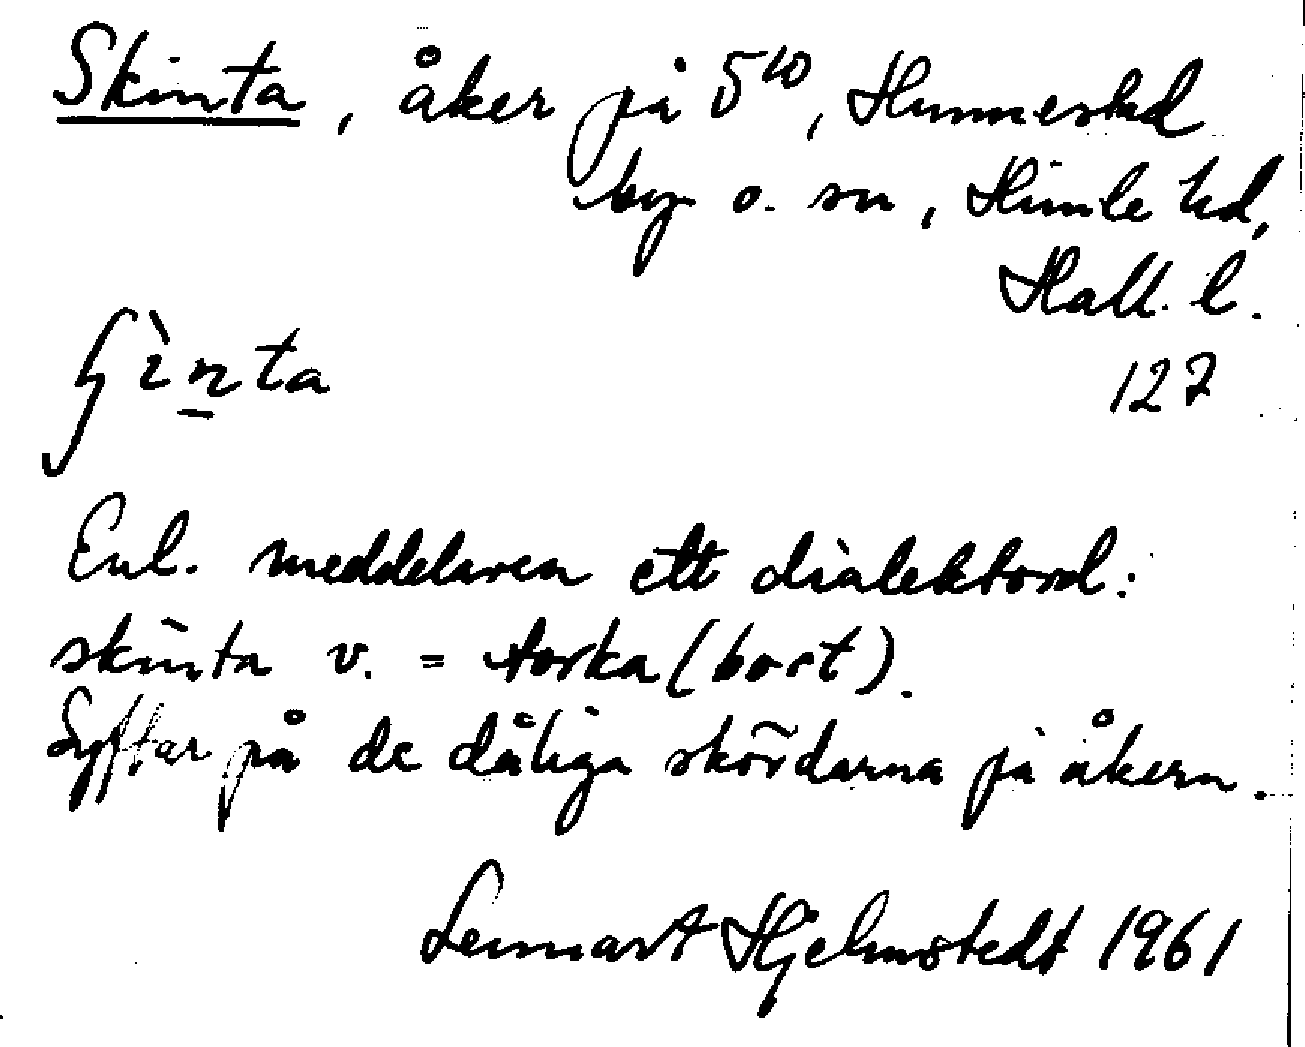 Skinta, åker på 5¹⁰, Hunnestad
by o. sn, Himle hd,
Hall. l.
127
ʃìn̲ta
Enl. meddelaren ett dialektord:
skinta v. = torka (bort).
Syftar på de dåliga skördarna på åkern.
Lennart Hjelmstedt 1961